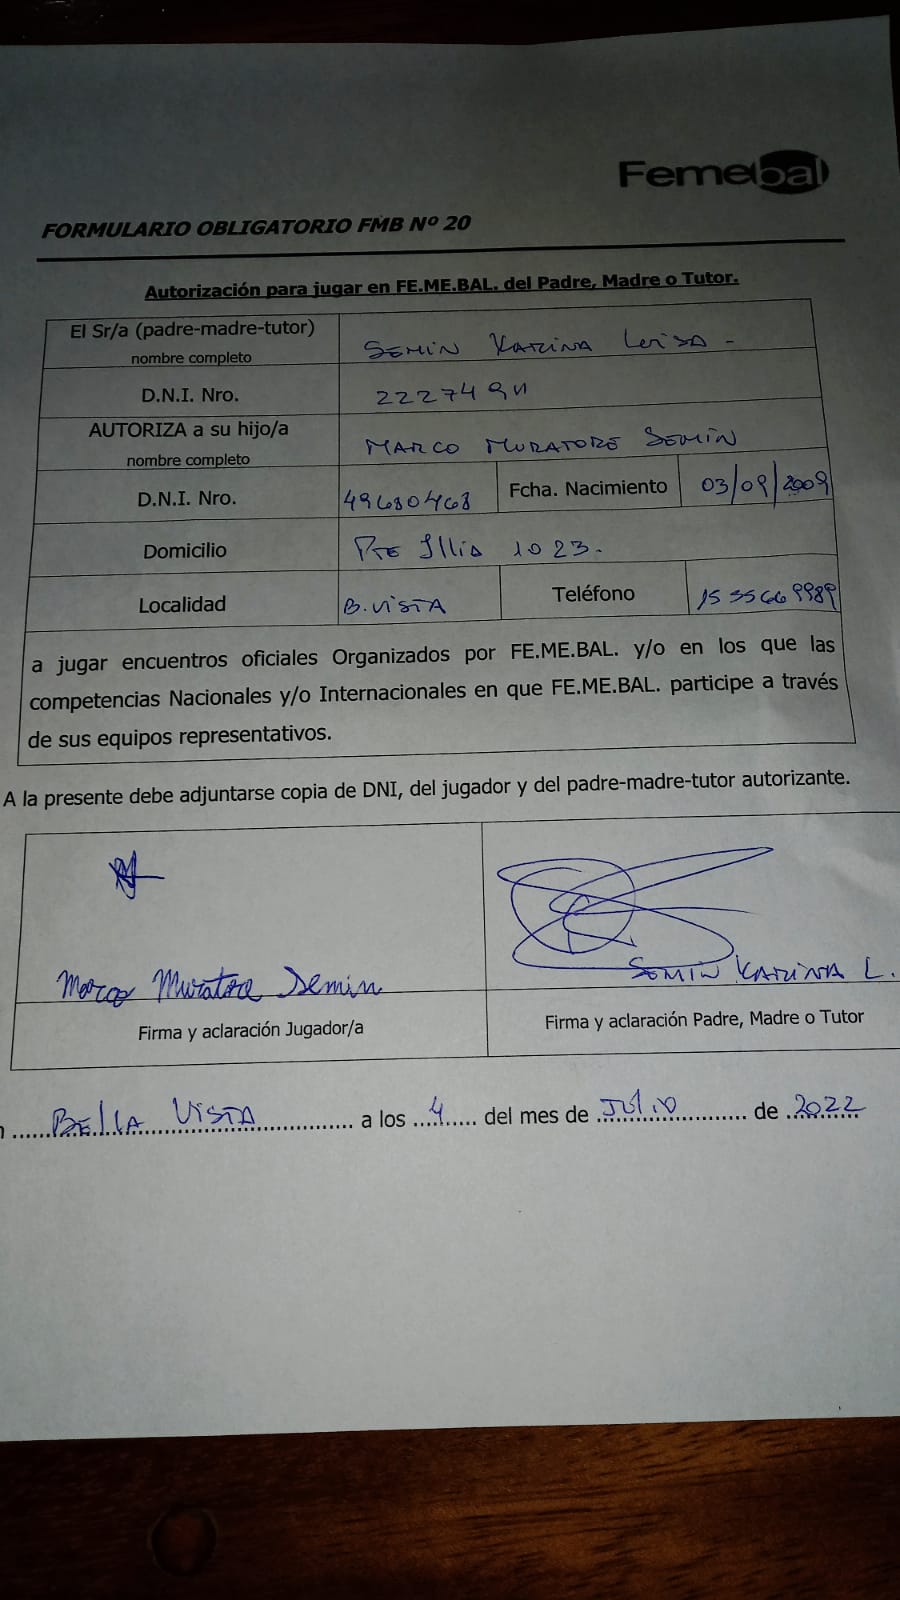 Femebal
FORMULARIO OBLIGATORIO FMB Nº 20
Autorización para jugar en FE.ME.BAL. del Padre, Madre o Tutor.
El Sr/a (padre-madre-tutor)
nombre completo
SEMIN KARINA
D.N.I. Nro.
AUTORIZA a su hijo/a
nombre completo
MARCO MURATORE SEMIN
D.N.I. Nro.
49680468
Fcha. Nacimiento
03/09/2009
Domicilio
PTE Illia 1023.
Localidad
B. VISTA
Teléfono
1535669989
a jugar encuentros oficiales Organizados por FE.ME.BAL. y/o en los que las
competencias Nacionales y/o Internacionales en que FE.ME.BAL. participe a través
de sus equipos representativos.
A la presente debe adjuntarse copia de DNI, del jugador y del padre-madre-tutor autorizante.
Marco Muratore Semin
SEMIN KARINA L.
Firma y aclaración Jugador/a
Firma y aclaración Padre, Madre o Tutor
BELLA VISTA a los 4 del mes de JULIO de 2022